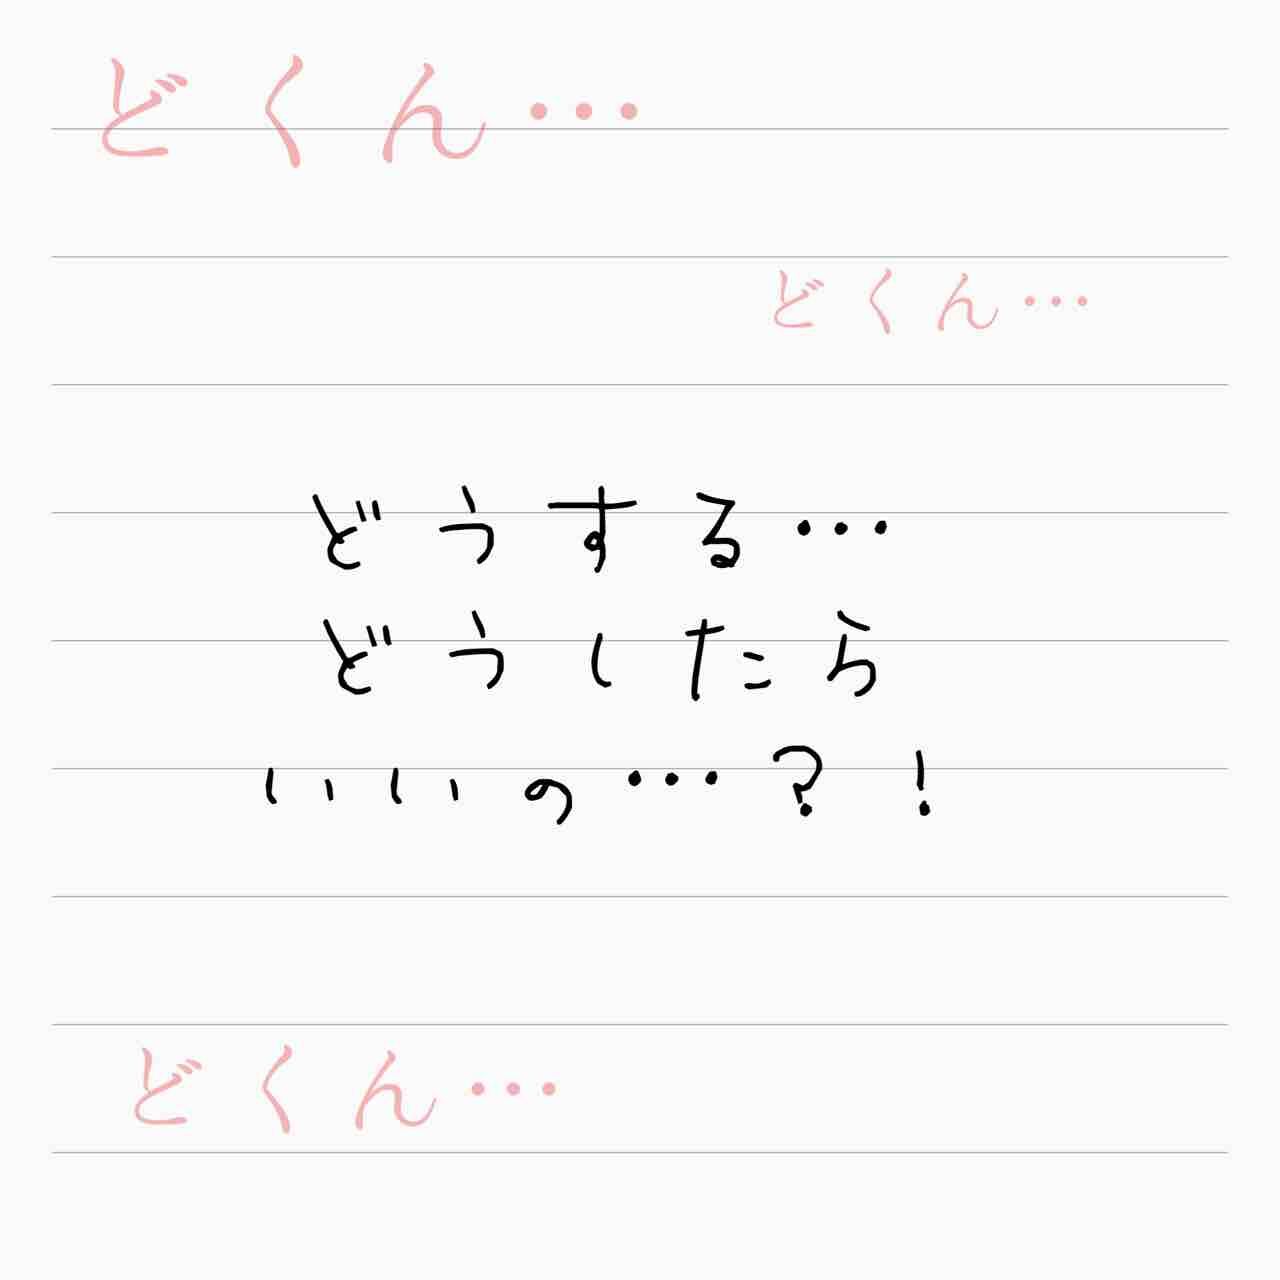 どくん…
どくん…
どうする…
どうしたら
いいの…？！
どくん…